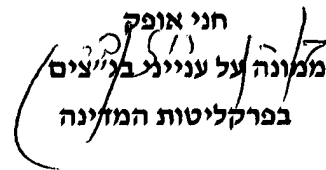 חני אופק
ממונה על ענייני בג״צים
בפרקליטות המדינה